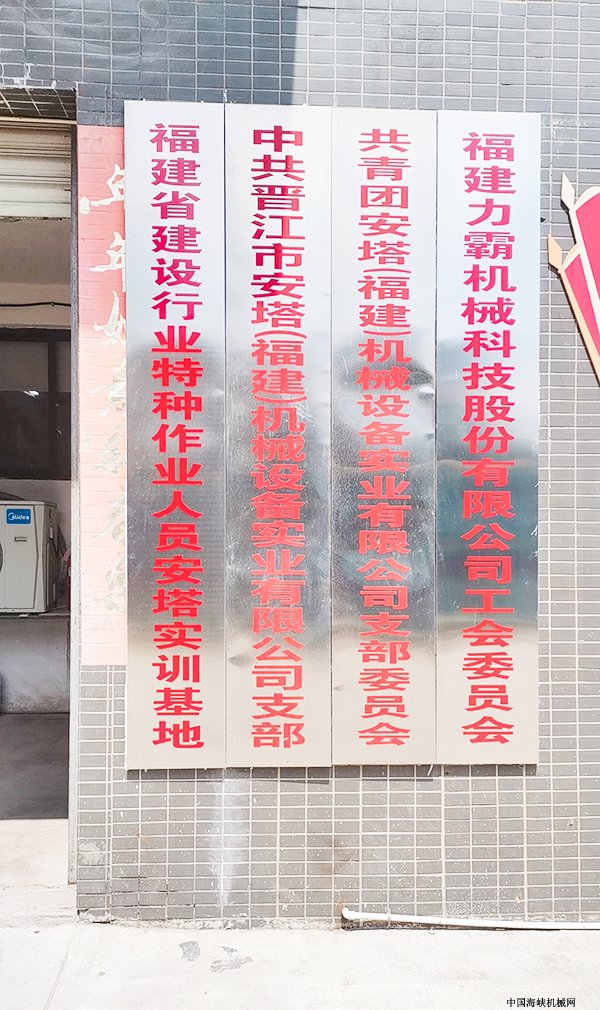 福建省建设行业特种作业人员安塔实训基地
中共晋江市安塔(福建)机械设备实业有限公司支部
共青团安塔(福建)机械设备实业有限公司支部委员会
福建力霸机械科技股份有限公司工会委员会
Midea
中国海峡机械网